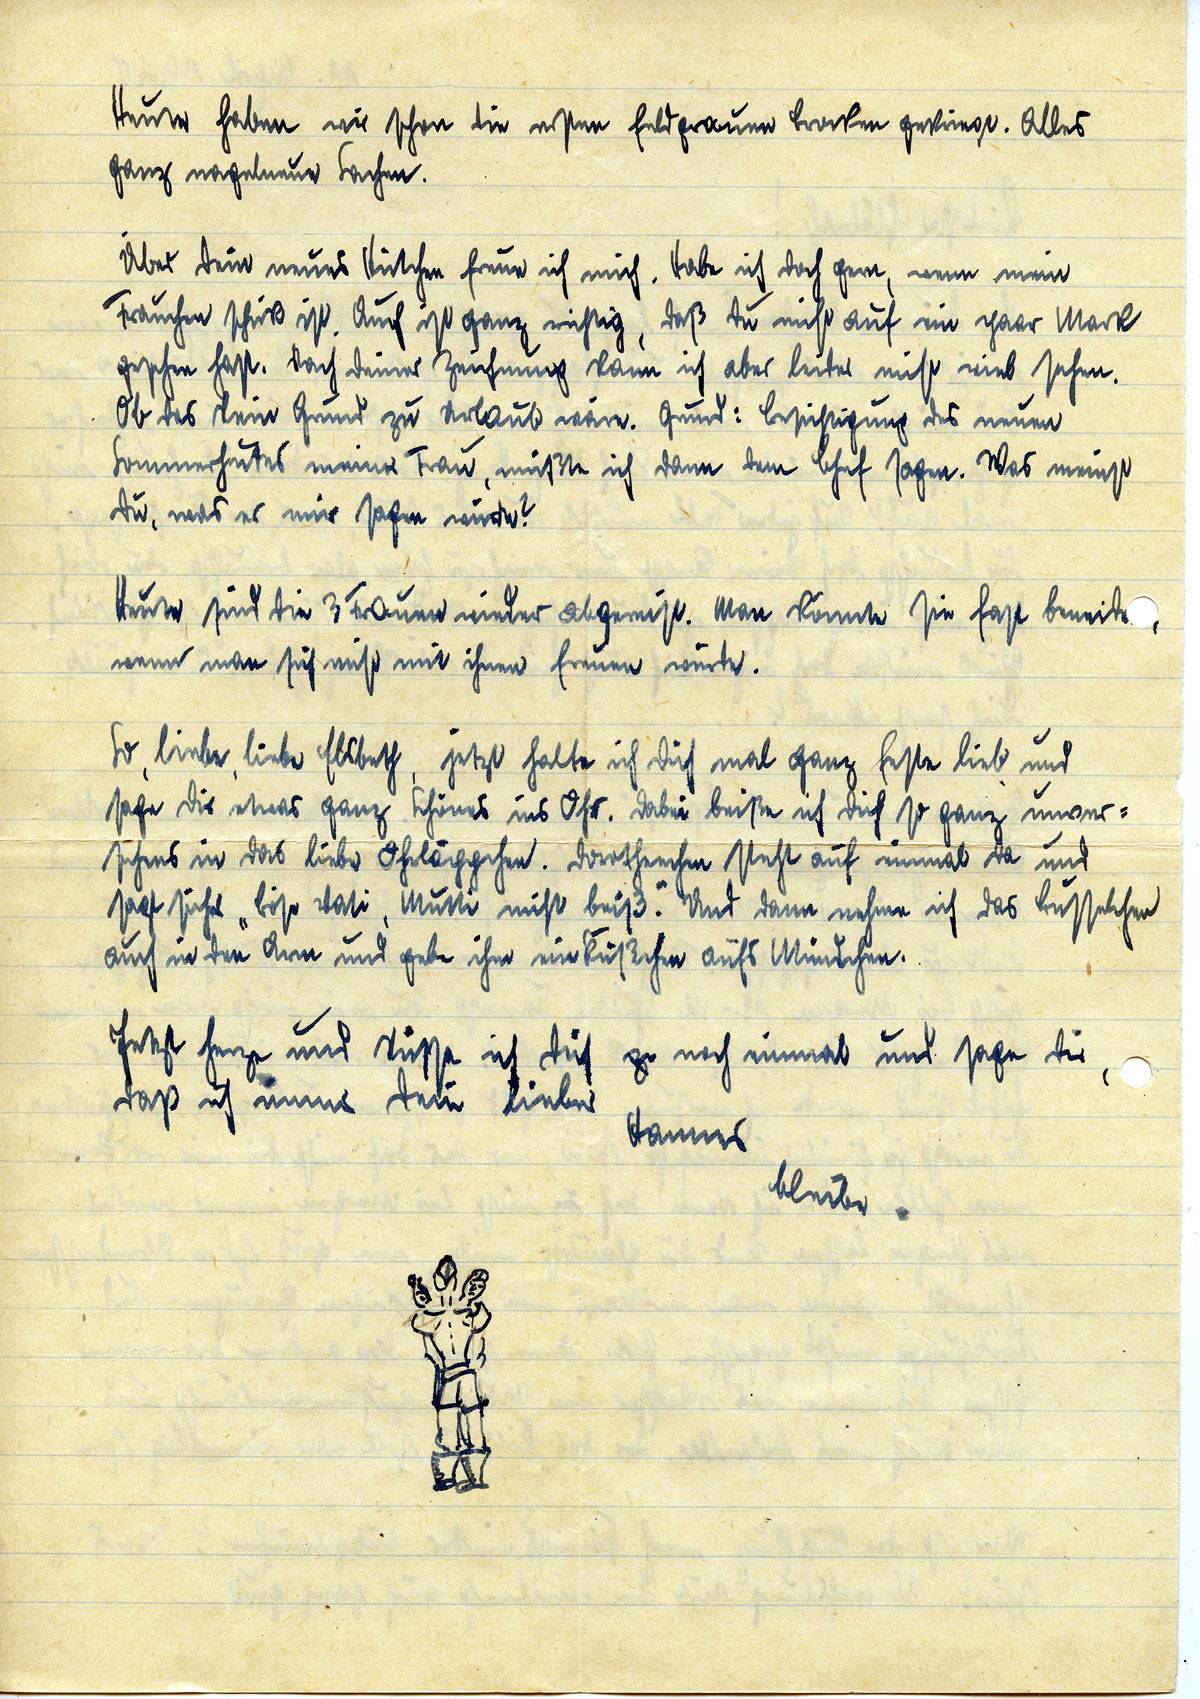 Heute haben wir schon die ersten feldgrauen Brocken gekriegt. Alles
ganz nagelneue Sachen.
Über Dein neues Hütchen freue ich mich. Habe ich doch gern, wenn mein
Frauchen schick ist. Auch ist ganz richtig, daß Du nicht auf ein paar Mark
gesehen hast. Nach Deiner Zeichnung kann ich aber leider nicht viel sehen.
Ob das kein Grund zu Urlaub wäre. Grund: Besichtigung des neuen
Sommerhutes meiner Frau, müßte ich dann dem Chef sagen. Was meinst
Du, was er mir sagen würde?
Heute sind die 3 Frauen wieder abgereist. Man könnte sie fast beneide ,
wenn man sich nicht mit ihnen freuen würde.
So, liebe, liebe Elsbeth, jetzt halte ich Dich mal ganz feste lieb und
sage Dir etwas ganz Schönes ins Ohr. Dabei beiße ich Dich so ganz unver=
sehens in das liebe Ohrläppchen. Dorotheechen steht auf einmal da und
sagt sicher „böse Vati, Mutti nicht beiß." Und dann nehme ich das Busselchen
auch in den Arm und gebe ihm ein Küßchen aufs Mündchen.
Jetzt herze und küsse ich Dich noch einmal und sage Dir,
daß ich immer Dein lieber
Hannes
bleibe.